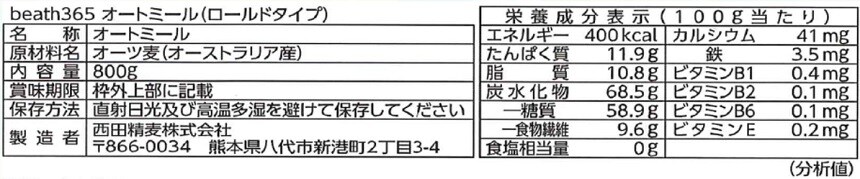 beath365 オートミール(ロールドタイプ)
名称 オートミール
原材料名 オーツ麦(オーストラリア産)
内容量 800g
賞味期限 枠外上部に記載
保存方法 直射日光及び高温多湿を避けて保存してください
製造者 西田精麦株式会社
〒866-0034 熊本県八代市新港町2丁目3-4
栄養成分表示(100g当たり)
エネルギー 400kcal カルシウム 41mg
たんぱく質 11.9g 鉄 3.5mg
脂質 10.8g ビタミンB1 0.4mg
炭水化物 68.5g ビタミンB2 0.1mg
―糖質 58.9g ビタミンB6 0.1mg
―食物繊維 9.6g ビタミンE 0.2mg
食塩相当量 0g
(分析値)